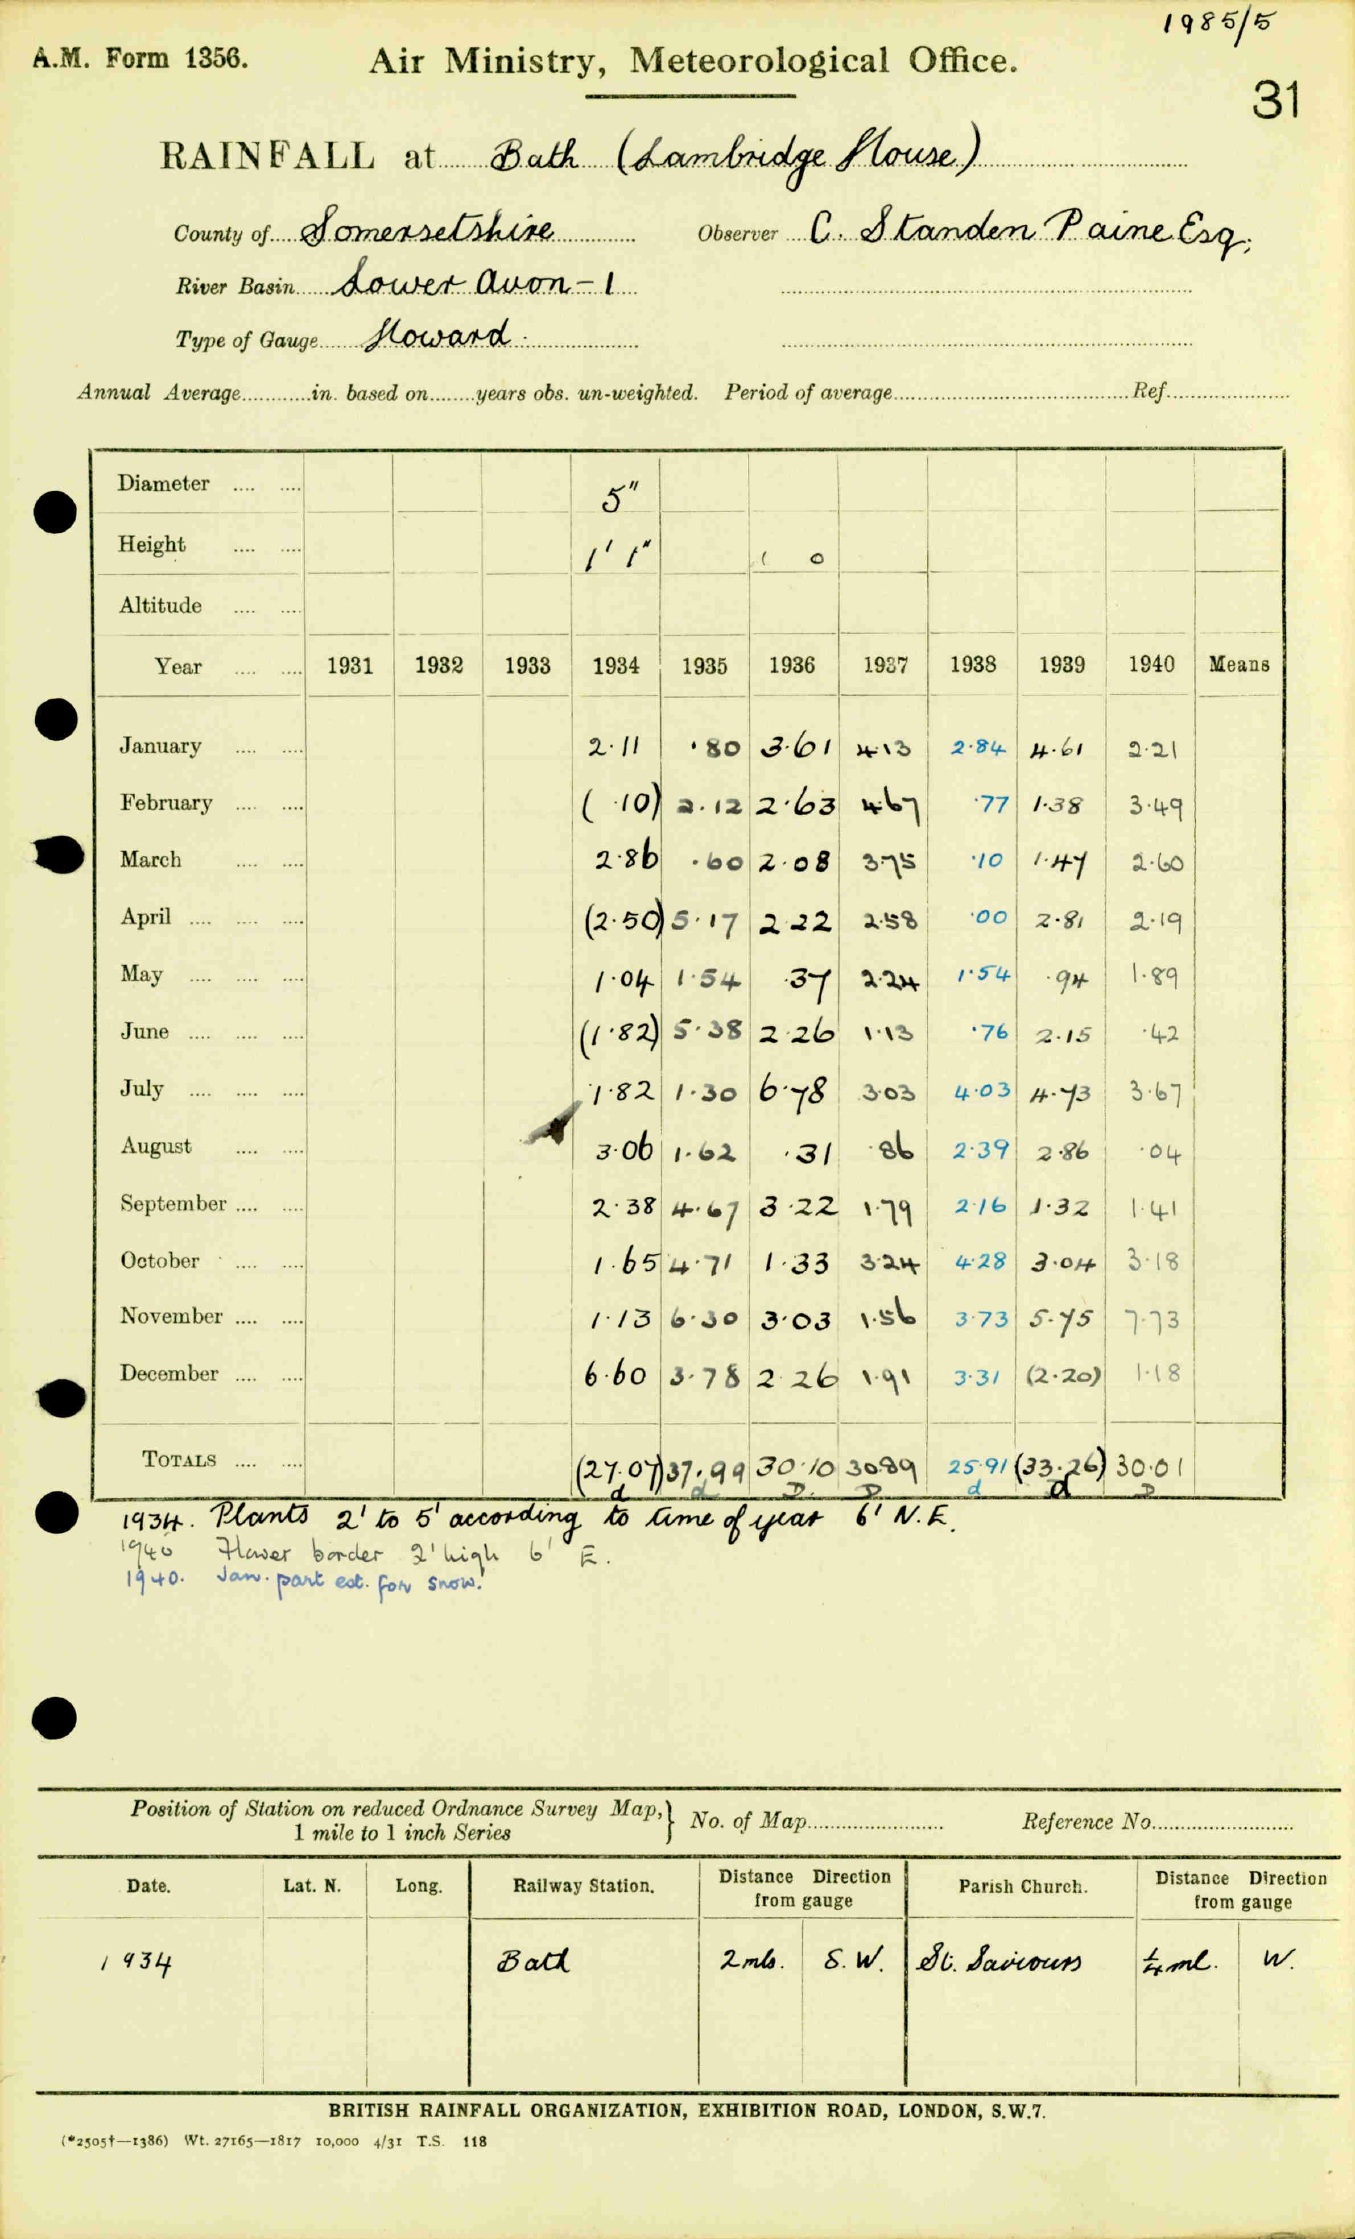 1985/5
A.M. Form 1356. Air Ministry, Meteorological Office.
31
RAINFALL at Bath (Lambridge House)
County of Somersetshire Observer C. Standen Paine Esq.
River Basin Lower Avon - 1
Type of Gauge Howard.
Annual Average............in. based on........years obs. un-weighted. Period of average............ Ref............
Diameter .... .... 5"
Height .... .... 1' 1" 1 0
Altitude .... ....
Year .... .... 1931 1932 1933 1934 1935 1936 1937 1938 1939 1940 Means
January .... .... 2.11 .80 3.61 4.13 2.84 4.61 2.21
February .... .... ( .10) 2.12 2.63 4.67 .77 1.38 3.49
March .... .... 2.86 .60 2.08 3.75 .10 1.47 2.60
April .... .... .... (2.50) 5.17 2.22 2.58 .00 2.81 2.19
May .... .... .... 1.04 1.54 .37 2.24 1.54 .94 1.89
June .... .... .... (1.82) 5.38 2.26 1.13 .76 2.15 .42
July .... .... .... 1.82 1.30 6.78 3.03 4.03 4.73 3.67
August .... .... 3.06 1.62 .31 .86 2.39 2.86 .04
September .... .... 2.38 4.67 3.22 1.79 2.16 1.32 1.41
October .... .... 1.65 4.71 1.33 3.24 4.28 3.04 3.18
November .... .... 1.13 6.30 3.03 1.56 3.73 5.75 7.73
December .... .... 6.60 3.78 2.26 1.91 3.31 (2.20) 1.18
TOTALS .... .... (27.07) 37.99 30.10 30.89 25.91 (33.26) 30.01
d d D. D d d D
1934. Plants 2' to 5' according to time of year 6' N.E.
1940 Flower border 2' high 6' E.
1940. Jan. part est. for snow.
Position of Station on reduced Ordnance Survey Map,} No. of Map............ Reference No............
1 mile to 1 inch Series
Date. Lat. N. Long. Railway Station. Distance Direction from gauge Parish Church. Distance Direction from gauge
1934 Bath 2 mls. S.W. St. Saviours ¼ ml. W.
BRITISH RAINFALL ORGANIZATION, EXHIBITION ROAD, LONDON, S.W.7.
(*2505†—1386) Wt. 27165—1817 10,000 4/31 T.S. 118